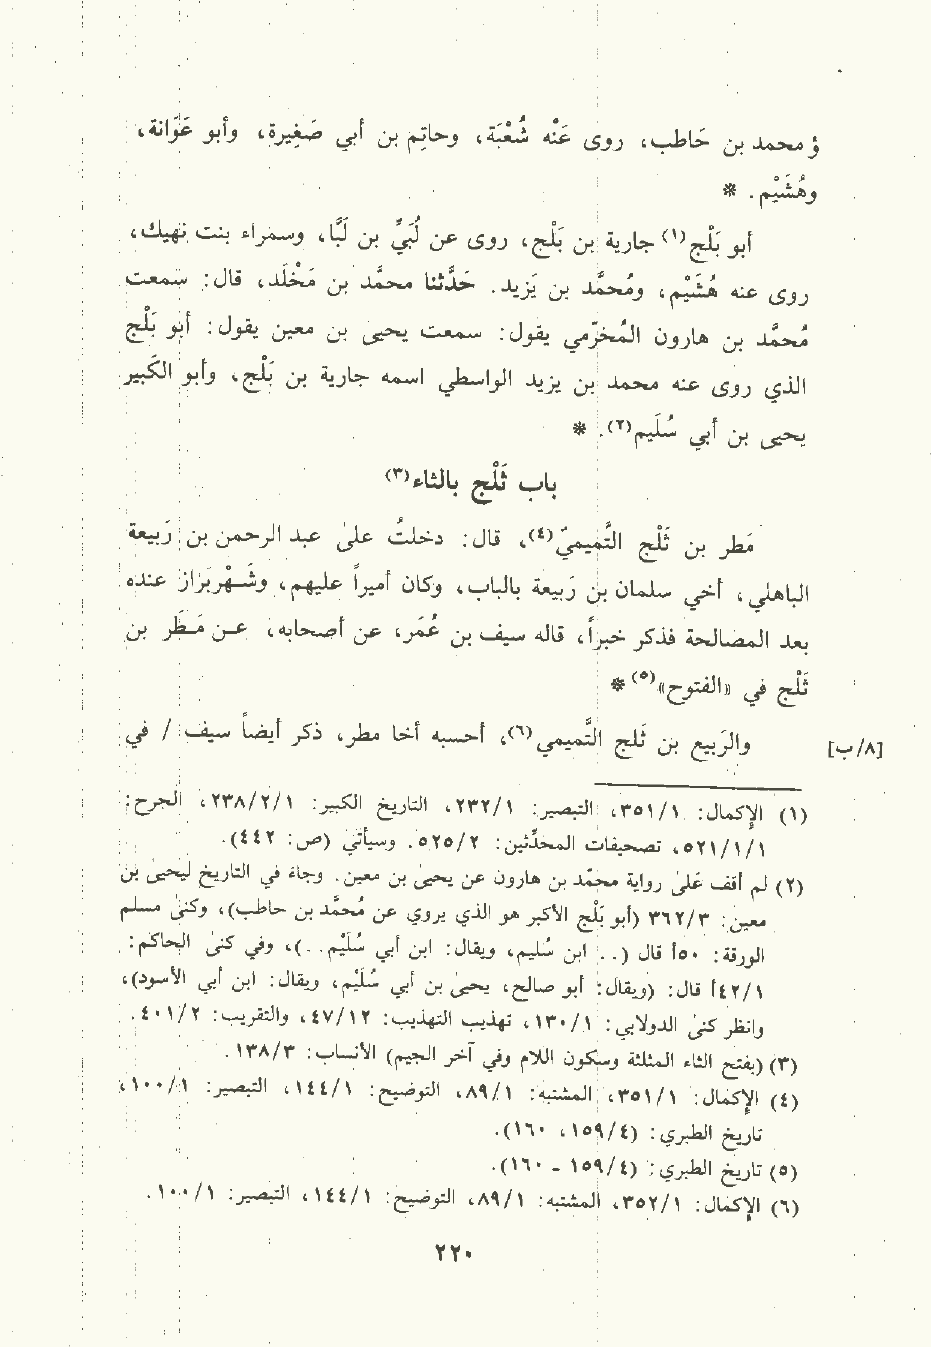 ؤ محمد بن حَاطب، روى عَنْه شُعْبَة، وحاتِم بن أبي صَغِيرة، وأبو عَوَانة،
وهُشَيْم. *
أبو بَلْج(١) جارية بن بَلْج، روى عن لُبَيِّ بن لَبَّا، وسمراء بنت نهيك،
روى عنه هُشَيْم، ومُحمَّد بن يَزيد. حَدَّثنا محمَّد بن مَخْلَد، قال: سمعت
مُحمَّد بن هارون المُخرّمي يقول: سمعت يحيى بن معين يقول: أبو بَلْج
الذي روى عنه محمد بن يزيد الواسطي اسمه جارية بن بَلْج، وأبو الكَبير
يحيى بن أبي سُلَيم(٢). *
باب ثَلْج بالثاء(٣)
مَطر بن ثَلْج التَّميميّ(٤)، قال: دخلتُ علىٰ عبد الرحمن بن رَبيعة
الباهلي، أخي سلمان بن رَبيعة بالباب، وكان أميراً عليهم، وشَهْربَراز عنده
بعد المصالحة فذكر خبراً، قاله سيف بن عُمَر، عن أصحابه، عـن مَـطَر بن
ثَلْج في «الفتوح»(٥) *
[٨/ب] والرَبيع بن ثَلْج التَّميمي(٦)، أحسبه أخا مطر، ذكر أيضاً سيف / في
(١) الإكمال: ٣٥١/١، التبصير: ٢٣٢/١، التاريخ الكبير: ٢٣٨/٢/١، الجرح:
٥٢١/١/١، تصحيفات المحدِّثين: ٥٢٥/٢. وسيأتي (ص: ٤٤٢).
(٢) لم أقف علىٰ رواية محمّد بن هارون عن يحيىٰ بن معين. وجاء في التاريخ ليحيىٰ بن
معين: ٣٦٢/٣ (أبو بَلْج الأكبر هو الذي يروي عن مُحمَّد بن حاطب)، وكنىٰ مسلم
الورقة: ٥٠أ قال (.. ابن سُليم، ويقال: ابن أبي سُلَيْم..)، وفي كنىٰ الحاكم:
٤٢/١أ قال: (ويقال: أبو صالح، يحيىٰ بن أبي سُلَيْم، ويقال: ابن أبي الأسود)،
وانظر كنىٰ الدولابي: ١٣٠/١، تهذيب التهذيب: ٤٧/١٢، والتقريب: ٤٠١/٢.
(٣) (بفتح الثاء المثلثة وسكون اللام وفي آخر الجيم) الأنساب: ١٣٨/٣.
(٤) الإكمال: ٣٥١/١، المشتبه: ٨٩/١، التوضيح: ١٤٤/١، التبصير: ١٠٠/١،
تاريخ الطبري: (١٥٩/٤، ١٦٠).
(٥) تاريخ الطبري: (١٥٩/٤ - ١٦٠).
(٦) الإكمال: ٣٥٢/١، المشتبه: ٨٩/١، التوضيح: ١٤٤/١، التبصير: ١٠٠/١.
٢٢٠